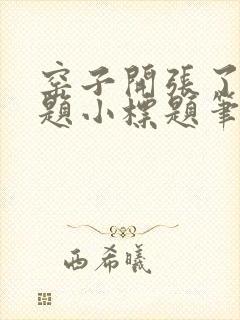 窑子開張了
題小標題筆
西希曦